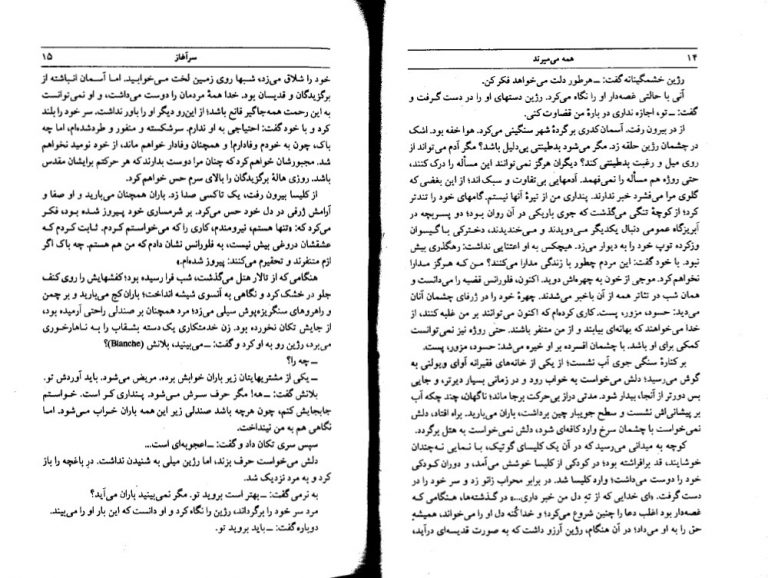 ۱۴ همه می‌میرند
رژین خشمگینانه گفت: ــ هرطور دلت می‌خواهد فکر کن.
آنی با حالتی غصه‌دار او را نگاه می‌کرد. رژین دستهای او را در دست گرفت و
گفت: ــ تو، اجازه نداری در بارهٔ من قضاوت کنی.
از در بیرون رفت. آسمان کدری بر گردهٔ شهر سنگینی می‌کرد. هوا خفه بود. اشک
در چشمان رژین حلقه زد. مگر می‌شود بدطینتی بی‌دلیل باشد؟ مگر آدم می‌تواند از
روی میل و رغبت بدطینتی کند؟ دیگران هرگز نمی‌توانند این مسأله را درک کنند،
حتی روژه هم مسأله را نمی‌فهمد. آدمهایی بی‌تفاوت و سبک‌اند؛ از این بغضی که
گلوی مرا می‌فشرد خبر ندارند. پنداری من از تیرهٔ آنها نیستم. گامهای خود را تندتر
کرد؛ از کوچهٔ تنگی می‌گذشت که جوی باریکی در آن روان بود؛ دو پسربچه در
آبریزگاه عمومی دنبال یکدیگر می‌دویدند و می‌خندیدند، دخترکی باگیسوان
وزکرده توپ خود را به دیوار می‌زد. هیچکس به او اعتنایی نداشت: رهگذری بیش
نبود. با خود گفت: این مردم چطور با زندگی مدارا می‌کنند؟ من که هرگز مدارا
نخواهم کرد. موجی از خون به چهره‌اش دوید. اکنون، فلورانس قضیه را می‌دانست و
همان شب در تئاتر همه از آن باخبر می‌شدند. چهرهٔ خود را در ژرفای چشمان آنان
می‌دید: حسود، مزور، پست. کاری کرده‌ام که اکنون می‌توانند بر من غلبه کنند، از
خدا می‌خواهند که بهانه‌ای بیابند و از من متنفر باشند. حتی روژه نیز نمی‌توانست
کمکی برای او باشد. با چشمان افسرده بر او خیره می‌شد: حسود، مزور، پست.
بر کنارهٔ سنگی جوی آب نشست؛ از یکی از خانه‌های فقیرانه آوای ویولنی به
گوش می‌رسید؛ دلش می‌خواست به خواب رود و در زمانی بسیار دیرتر، و جایی
بس دورتر از آنجا، بیدار شود. مدتی دراز بی‌حرکت برجا ماند؛ ناگهان، چند چکه آب
بر پیشانی‌اش نشست و سطح جویبار چین برداشت، باران می‌بارید. براه افتاد، دلش
نمی‌خواست با چشمان سرخ وارد کافه‌ای شود، دلش نمی‌خواست به هتل برگردد.
کوچه به میدانی می‌رسید که در آن یک کلیسای گوتیک، با نمایی نه‌چندان
خوشایند، قد برافراشته بود؛ در کودکی از کلیسا خوشش می‌آمد، و دوران کودکی
خود را دوست می‌داشت؛ وارد کلیسا شد. در برابر محراب زانو زد و سر خود را در
دست گرفت. «ای خدایی که از ته دل من خبر داری...» در گذشته‌ها، هنگامی که
غصه‌دار بود اغلب دعا را چنین شروع می‌کرد؛ و خدا کُنه دل او را می‌خواند، همیشه
حق را به او می‌داد؛ در آن هنگام، رژین آرزو داشت که به صورت قدیسه‌ای درآید،
سرآغاز ۱۵
خود را شلاق می‌زد، شبها روی زمین لخت می‌خوابید. اما آسمان انباشته از
برگزیدگان و قدیسان بود. خدا همهٔ مردمان را دوست می‌داشت، و او نمی‌توانست
به این رحمت همه‌جاگیر قانع باشد؛ از این‌رو دیگر او را باور نداشت. سر خود را بلند
کرد و با خود گفت: احتیاجی به او ندارم. سرشکسته و منفور و طردشده‌ام، اما چه
باک، چون به خودم وفادارم! و همچنان وفادار خواهم ماند، از خود نومید نخواهم
شد. مجبورشان خواهم کرد که چنان مرا دوست بدارند که هر حرکتم برایشان مقدس
باشد. روزی هالهٔ برگزیدگان را بالای سرم حس خواهم کرد.
از کلیسا بیرون رفت، یک تاکسی صدا زد. باران همچنان می‌بارید و او صفا و
آرامش ژرفی در دل خود حس می‌کرد. بر شرمساری خود پیروز شده بود، فکر
می‌کرد که: «تنها هستم، نیرومندم، کاری را که می‌خواستم کردم. ثابت کردم که
عشقشان دروغی بیش نیست، به فلورانس نشان دادم که من هم هستم. چه باک اگر
ازم متنفرند و تحقیرم می‌کنند: پیروز شده‌ام.»
هنگامی که از تالار هتل می‌گذشت، شب فرا رسیده بود؛ کفشهایش را روی کنف
جلو در خشک کرد و نگاهی به آنسوی شیشه انداخت؛ باران کج می‌بارید و بر چمن
و راهروهای سنگریزه‌پوش سیلی می‌زد؛ مرد همچنان بر صندلی راحتی آرمیده بود،
از جایش تکان نخورده بود. زن خدمتکاری یک دسته بشقاب را به ناهارخوری
می‌برد، رژین رو به او کرد و گفت: ــ می‌بینید، بلانش (Blanche)؟
ــ چه را؟
ــ یکی از مشتریهایتان زیر باران خوابش برده. مریض می‌شود. باید آوردش تو.
بلانش گفت: ــ هه! مگر حرف سرش می‌شود. پنداری کر است. خواستم
جابجایش کنم، چون هرچه باشد صندلی زیر این همه باران خراب می‌شود. اما
نگاهی هم به من نینداخت.
سپس سری تکان داد و گفت: ــ اعجوبه‌ای است...
دلش می‌خواست حرف بزند، اما رژین میلی به شنیدن نداشت. در باغچه را باز
کرد و به مرد نزدیک شد.
به نرمی گفت: ــ بهتر است بروید تو. مگر نمی‌بینید باران می‌آید؟
مرد سر خود را برگرداند، رژین را نگاه کرد و او دانست که این بار او را می‌بیند.
دوباره گفت: ــ باید بروید تو.